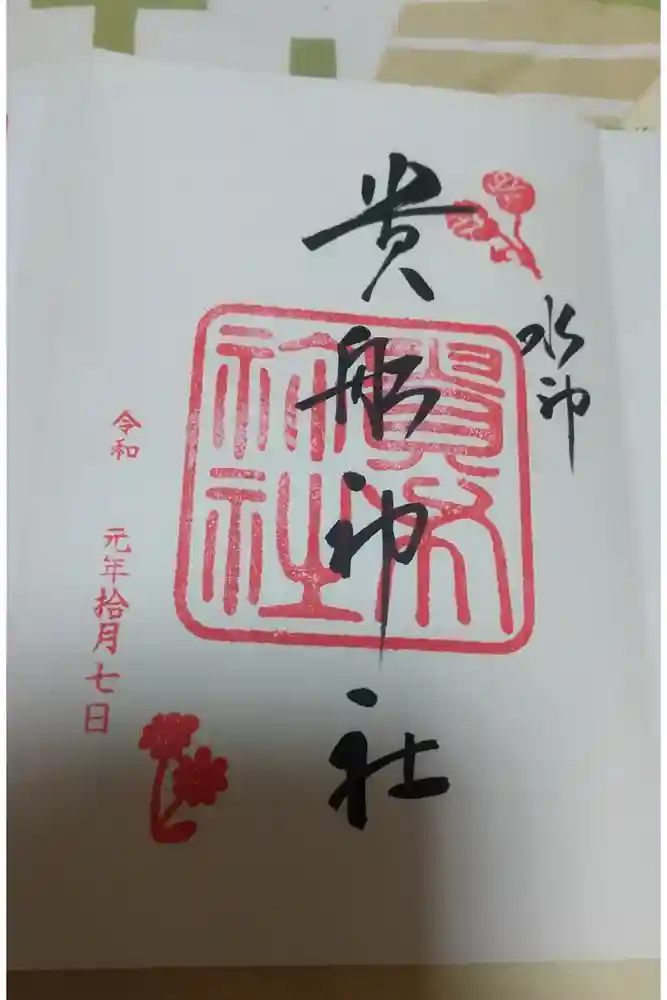 水神
貴船神社
貴布
祢社
令和 元年拾月七日